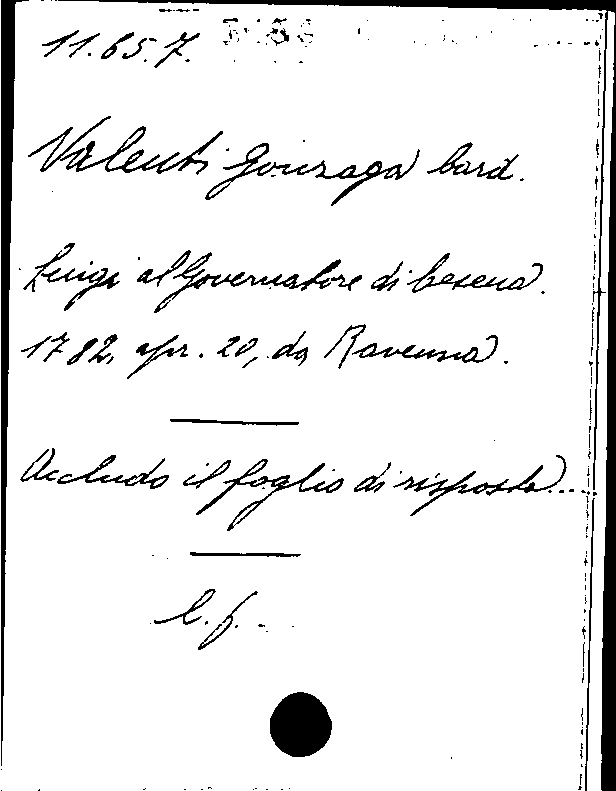 11.65.7.
Valenti Gonzaga Card.
Luigi al Governatore di Cesena.
1782, apr. 20, da Ravenna.
Accludo il foglio di risposta....
l. f.